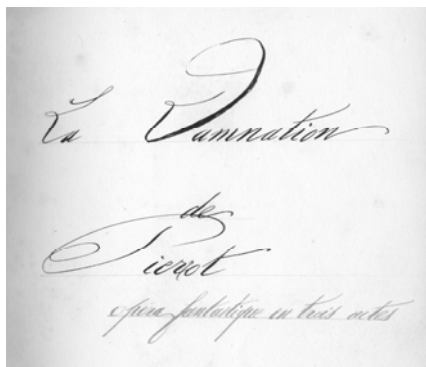 La Damnation
de
Pierrot
opéra fantastique en trois actes